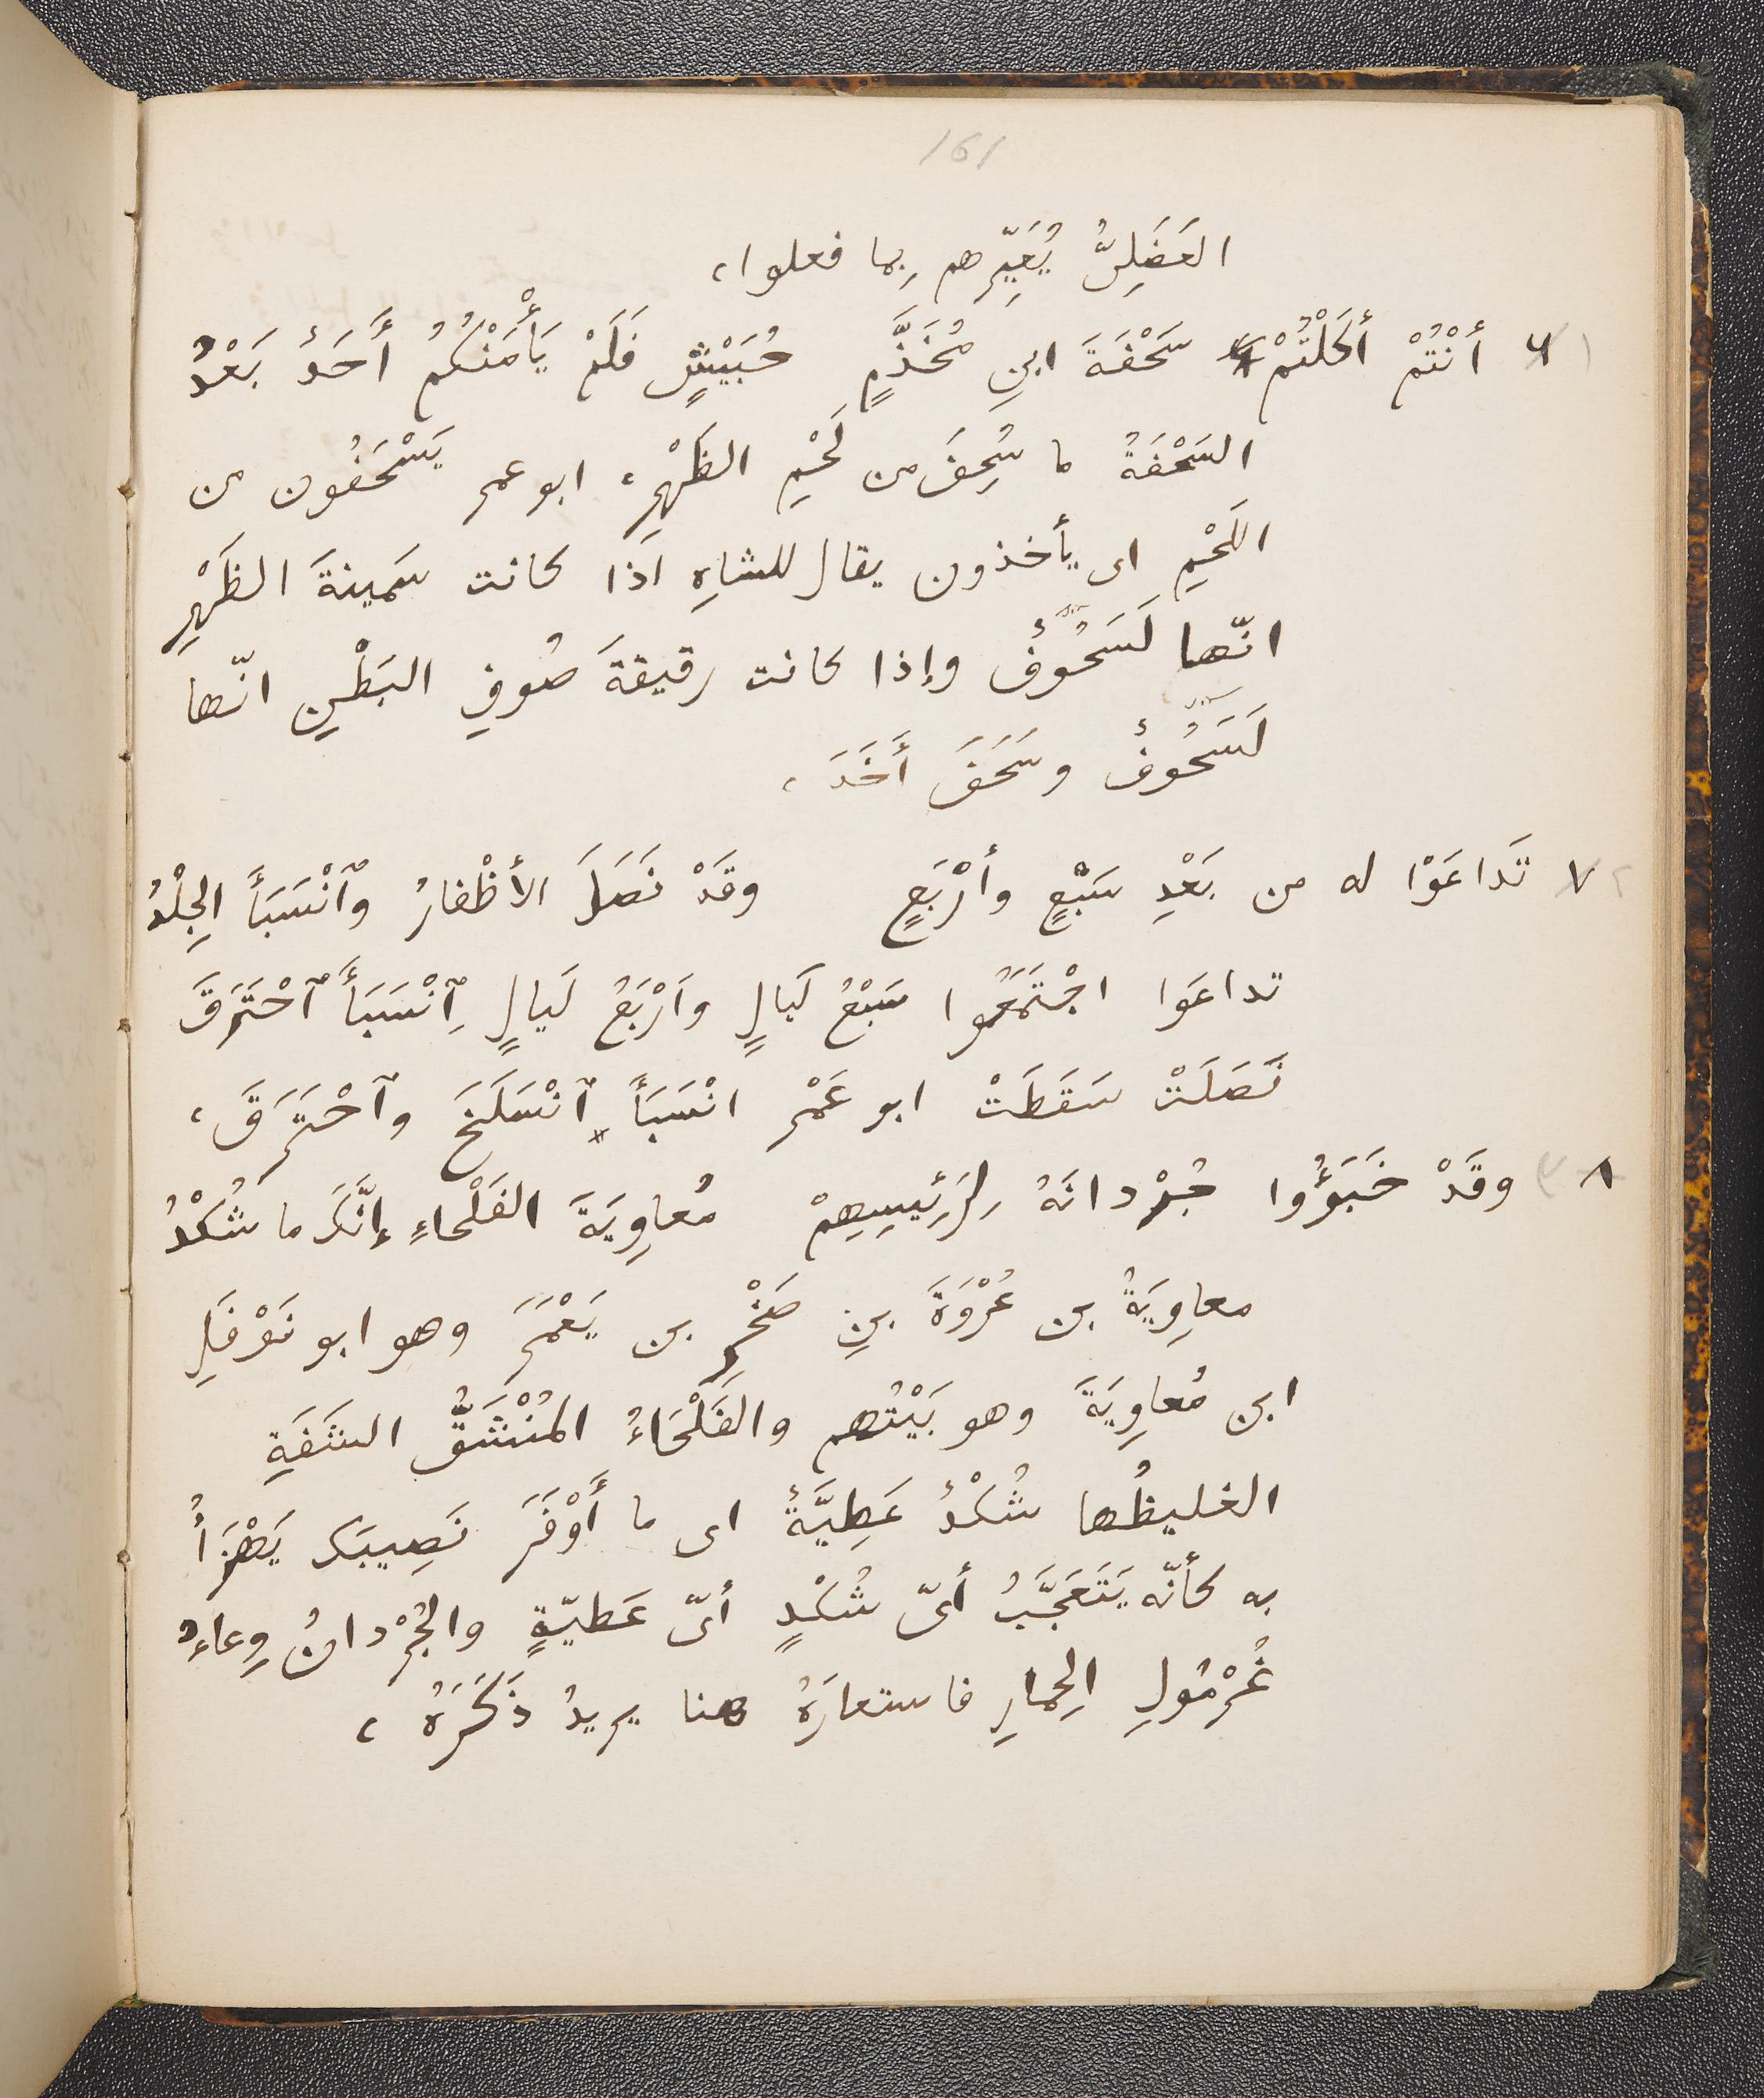 161
العَضَلِىُّ يُعَيِّرهم بِما فعلوا،
أنْتُمْ أكَلْتُمْ سَحْفَةَ ابنِ مُخَذَّمٍ حُبَيْشٍ فَلَمْ يَأْمَنْكُمُ أَحَدٌ بَعْدُ
السَحْفَةُ ما سُحِفَ من لَحْمِ الظَهْرِ، ابو عمر يَسْحَفُون من
اللَحْمِ اى يأخذون يقال للشاهِ اذا كانت سَمينةَ الظَهْرِ
انّها لَسَحُوفٌ وإذا كانت رقيقةَ صُوفِ البَطْنِ انّها
لَسَحُوفٌ وسَحَفَ أَخَذَ،
٧ تَداعَوْا له من بَعْدِ سَبْعٍ وأرْبَعٍ وقَدْ نَصَلَ الأظْفارُ وٱنْسَبَأَ الجِلْدُ
تداعَوا اجْتَمَعُوا سَبْعُ لَيالٍ وأَرْبَعُ لَيالٍ ٱِنْسَبَأَ ٱحْتَرَقَ
نَصَلَتْ سَقَطَتْ ابو عَمْر انْسَبَأَ ٱنْسَلَخَ وٱحْتَرَقَ،
٨ وقَدْ خَبَؤُوا جُرْدانَهُ لِرَئِيسِهِمْ مُعاوِيَةَ الفَلْحاءِ إنَّكَ ما شُكْدُ
معاوِيَةُ بن عُرْوَةَ بنِ صَخْرِ بن يَعْمَرَ وهو ابو نَوْفَلِ
ابن مُعاوِيَةَ وهو بَيْتُهم والفَلْحَاءُ المُنْشَقُّ الشَفَةِ
الغليظُها شُكْدٌ عَطِيَّةٌ اى ما أَوْفَرَ نَصِيبَكَ يَهْزَأُ
به كأنّه يَتَعَجَّبُ أىّ شُكْدٍ أىّ عَطيّةٍ والجُرْدانُ وِعاءُ
غُرْمُولِ الحِمارِ فاستعارَهُ هنا يريدُ ذَكَرَهُ،